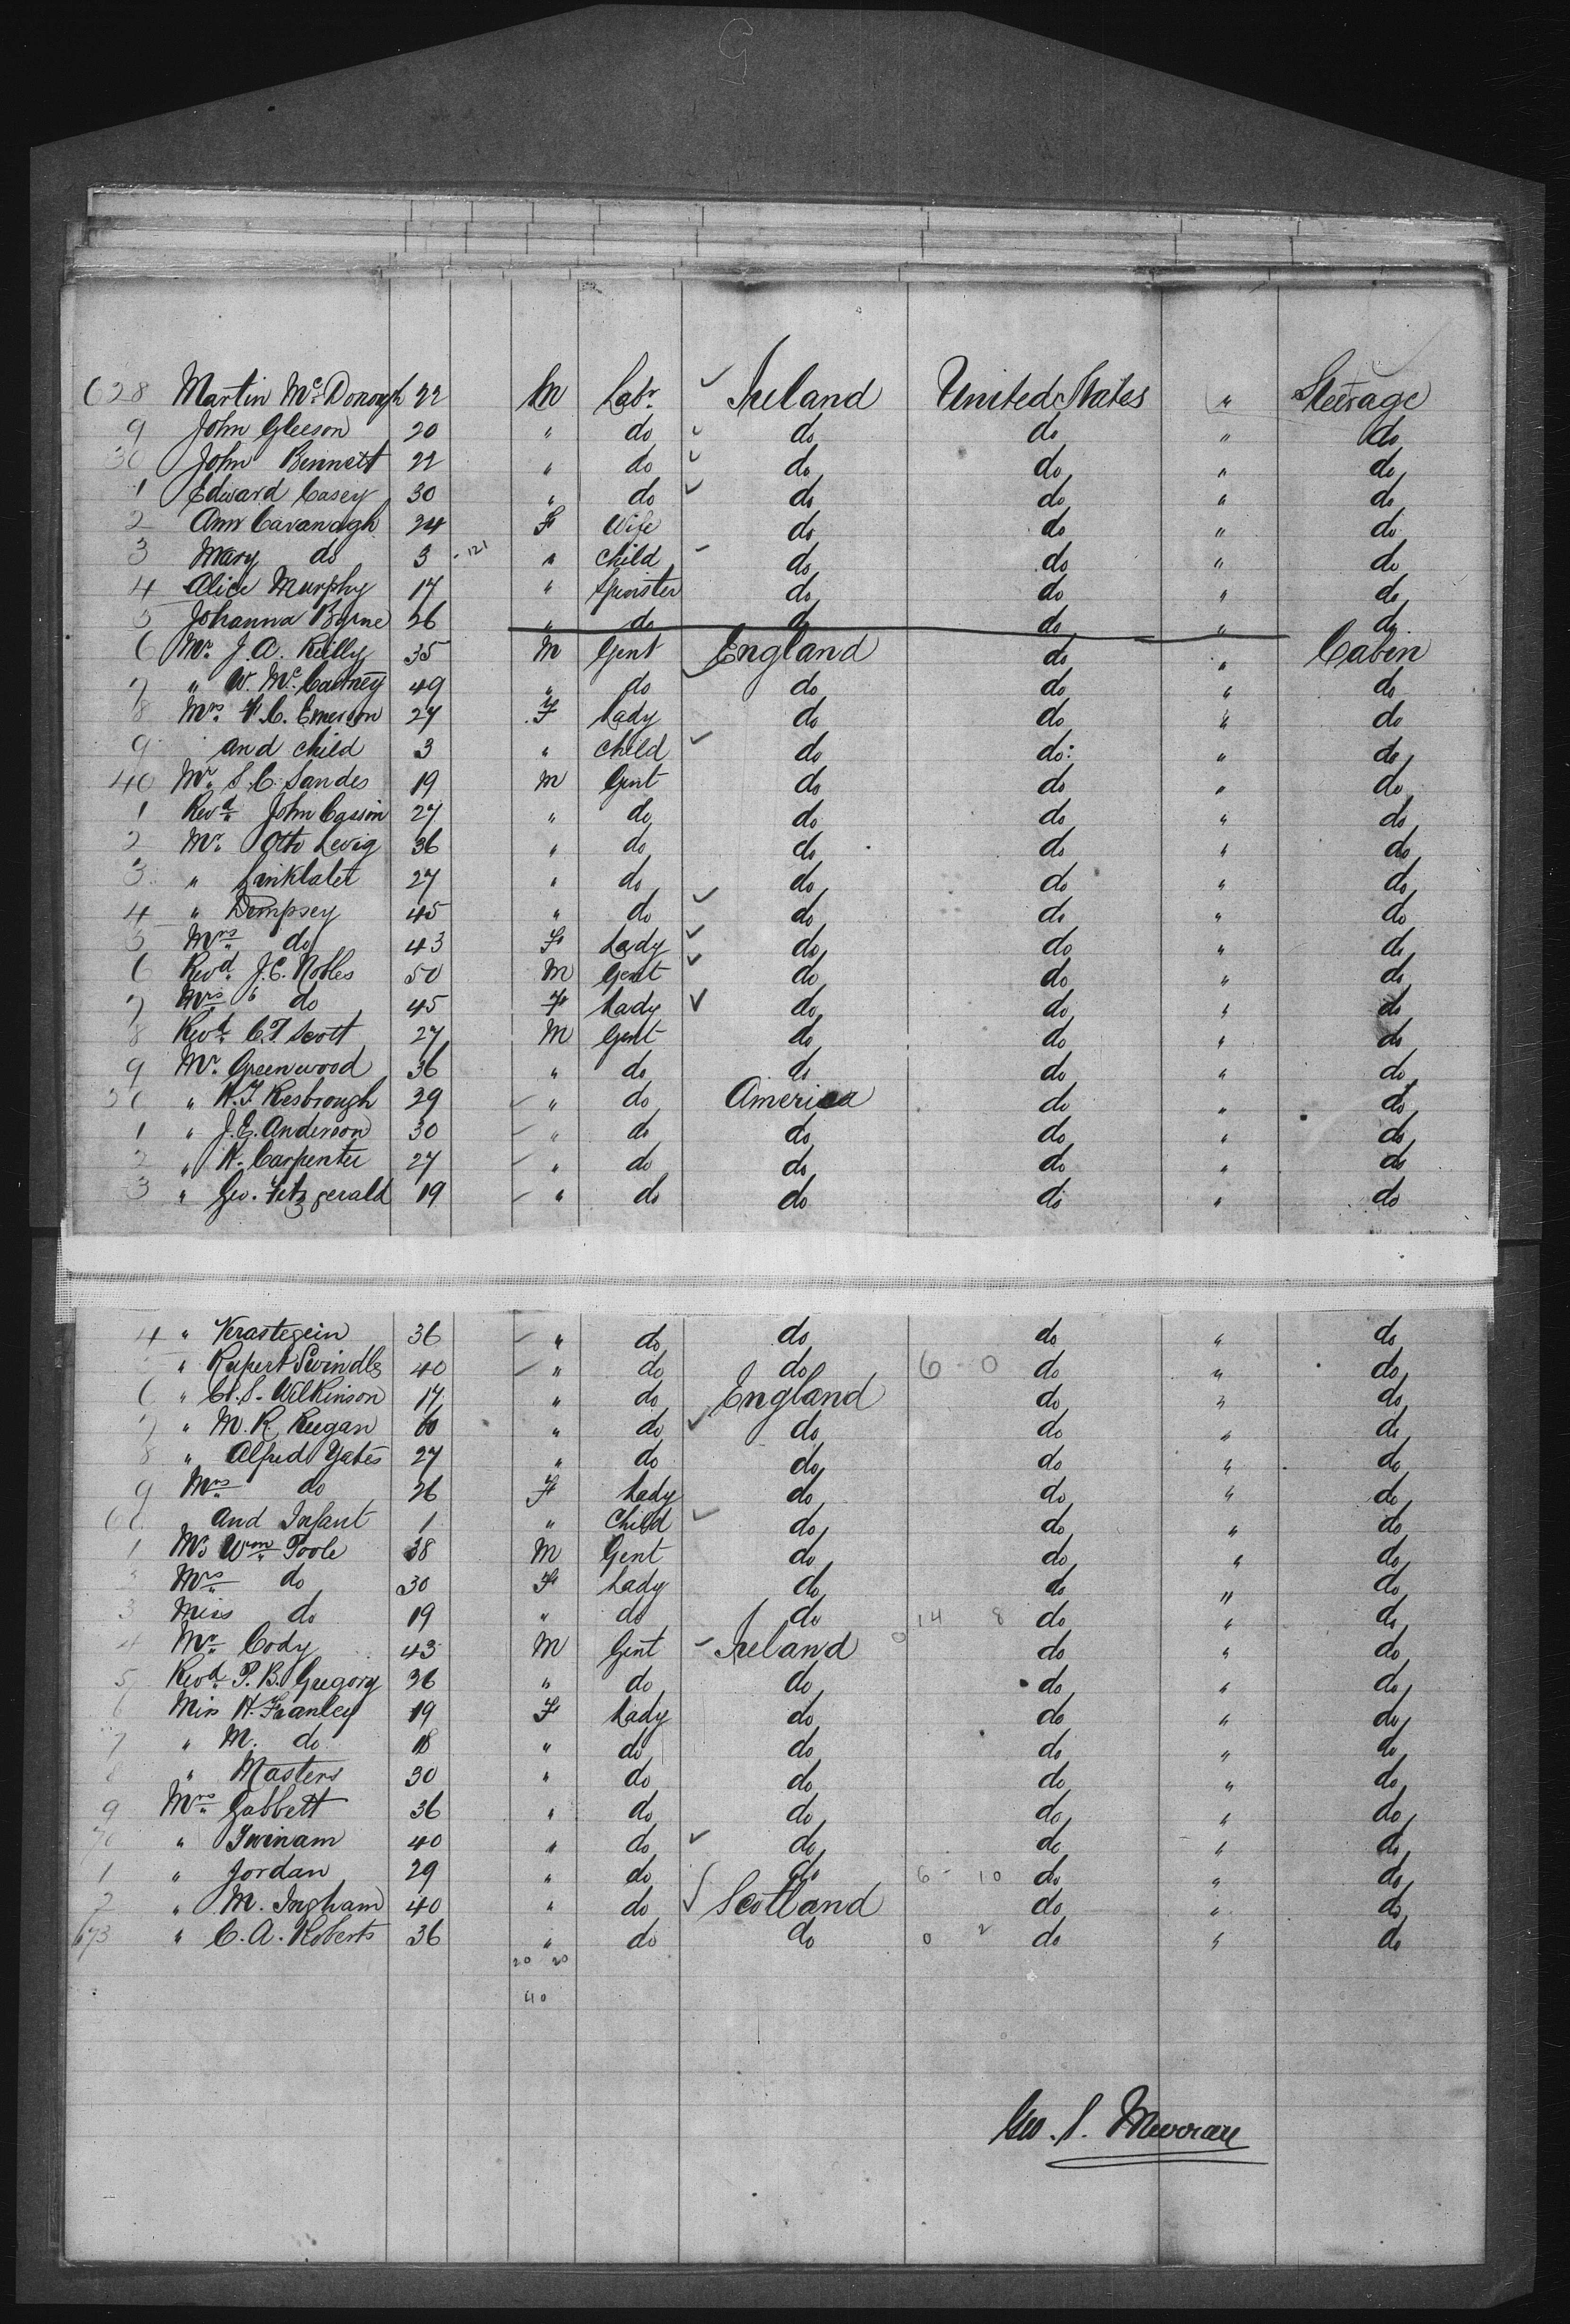 628 Martin McDonough 22 M Labr. Ireland United States " Steerage
9 John Gleeson 20 " do do do " do
30 John Bennett 22 " do do do " do
1 Edward Casey 30 " do do do " do
2 Ann Cavanagh 24 F Wife do do " do
3 Mary do 3 - 121 " Child do do " do
4 Alice Murphy 17 " Spinster do do " do
5 Johanna Byrne 26 " do do do " do
6 Mr. J. A. Reilly 35 M Gent England do " Cabin
7 " W. McCartney 49 " do do do " do
8 Mrs. F. C. Emerson 27 F Lady do do " do
9 and child 3 " Child do do: " do
40 Mr. S. C. Sandes 19 M Gent do do " do
1 Revd. John Cassin 27 " do do do " do
2 Mr. Otto 36 " do do do " do
3 " 27 " do do do " do
4 " Dempsey 45 " do do do " do
5 Mrs. do 43 F Lady do do " do
6 Revd. J. C. Nobles 50 M Gent do do " do
7 Mrs. do 45 F Lady do do " do
8 Revd. C. T. Scott 27 M Gent do do " do
9 Mr. Greenwood 36 " do do do " do
50 " 29 " do America do " do
1 " J. E. Anderson 30 " do do do " do
2 " H. Carpenter 27 " do do do " do
3 " Geo. Fitzgerald 19 " do do do " do
4 " Verastegein 36 " do do do " do
" Rupert Swindle 40 " do do 6 - 0 do " do
6 " S. Wilkinson 17 " do England do " do
7 " M. R. Keegan 60 " do do do " do
8 " Alfred Yates 27 " do do do " do
9 Mrs. do 26 F Lady do do " do
60 and Infant 1 " Child do do " do
1 Mr Wm. Poole 38 M Gent do do " do
2 Mrs. do 30 F Lady do do " do
3 Miss do 19 " do do 14 8 do " do
4 Mr. Cody 43 M Gent Ireland 0 do " do
5 Revd. P. B. Gregory 36 " do do do " do
6 Miss H. Franley 19 F Lady do do " do
7 " M. do 18 " do do do " do
8 " Masters 30 " do do do " do
9 Mrs. Gabbett 36 " do do do " do
70 " Twinam 40 " do do do " do
1 " Jordan 29 " do do 6 - 10 do " do
2 " M. Ingham 40 " do Scotland do " do
673 " C. A. Roberts 36 " do do 0 2 do " do
20 20
40
Geo. S. Murray